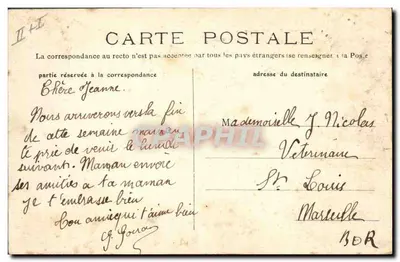 II + I
CARTE POSTALE
La correspondance au recto n'est pas acceptée par tous les pays étrangers (se renseigner à la Poste
partie réservée à la correspondance
adresse du destinataire
Chère Jeanne.
Nous arriverons vers la fin
de cette semaine maman
te prie de venir le lundi
suivant. Maman envoie
ses amitiés a ta maman
je t'embrasse bien
ton amie qui t'aime bien
Mademoiselle J Nicolas
Vétérinaire
St. Louis
Marseille
BDR